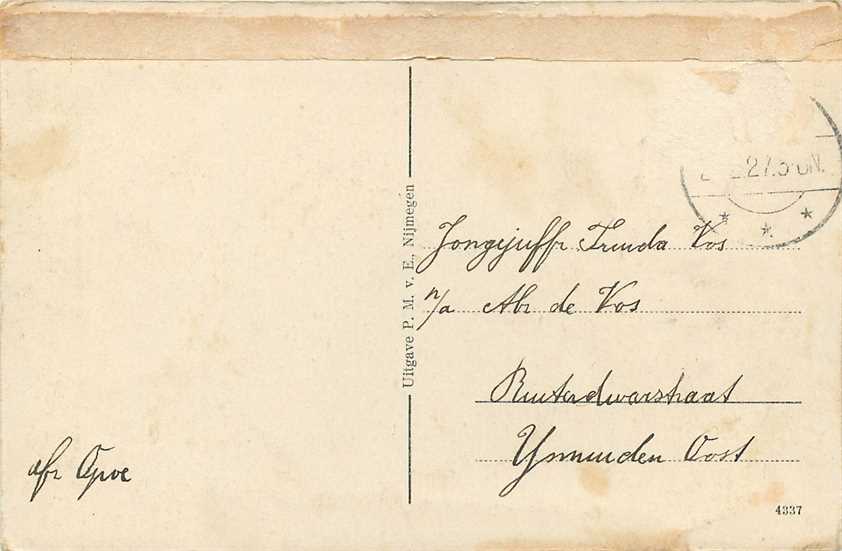 27.5-6N.
Uitgave P. M. v. E., Nijmegen
Jongejuffr Truuda Vos
n/a Abr de Vos
Ruiterdwarsstraat
Ymuiden Oost
afz Opoe
4337